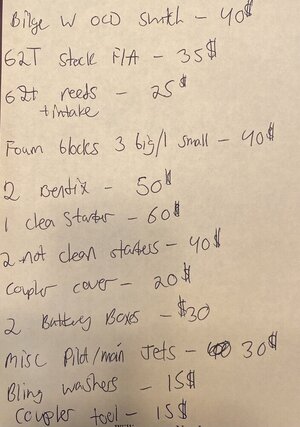 Bilge w OCD switch - 40$
62T stock F/A - 35$
62t reeds - 25$
+intake
Foam blocks 3 big/1 small - 40$
2 Bendix - 50$
1 clean starter - 60$
2 not clean starters - 40$
Coupler cover - 20$
2 Battery Boxes - $30
Misc Pilot/main Jets - 30$
Bling washers - 15$
Coupler tool - 15$